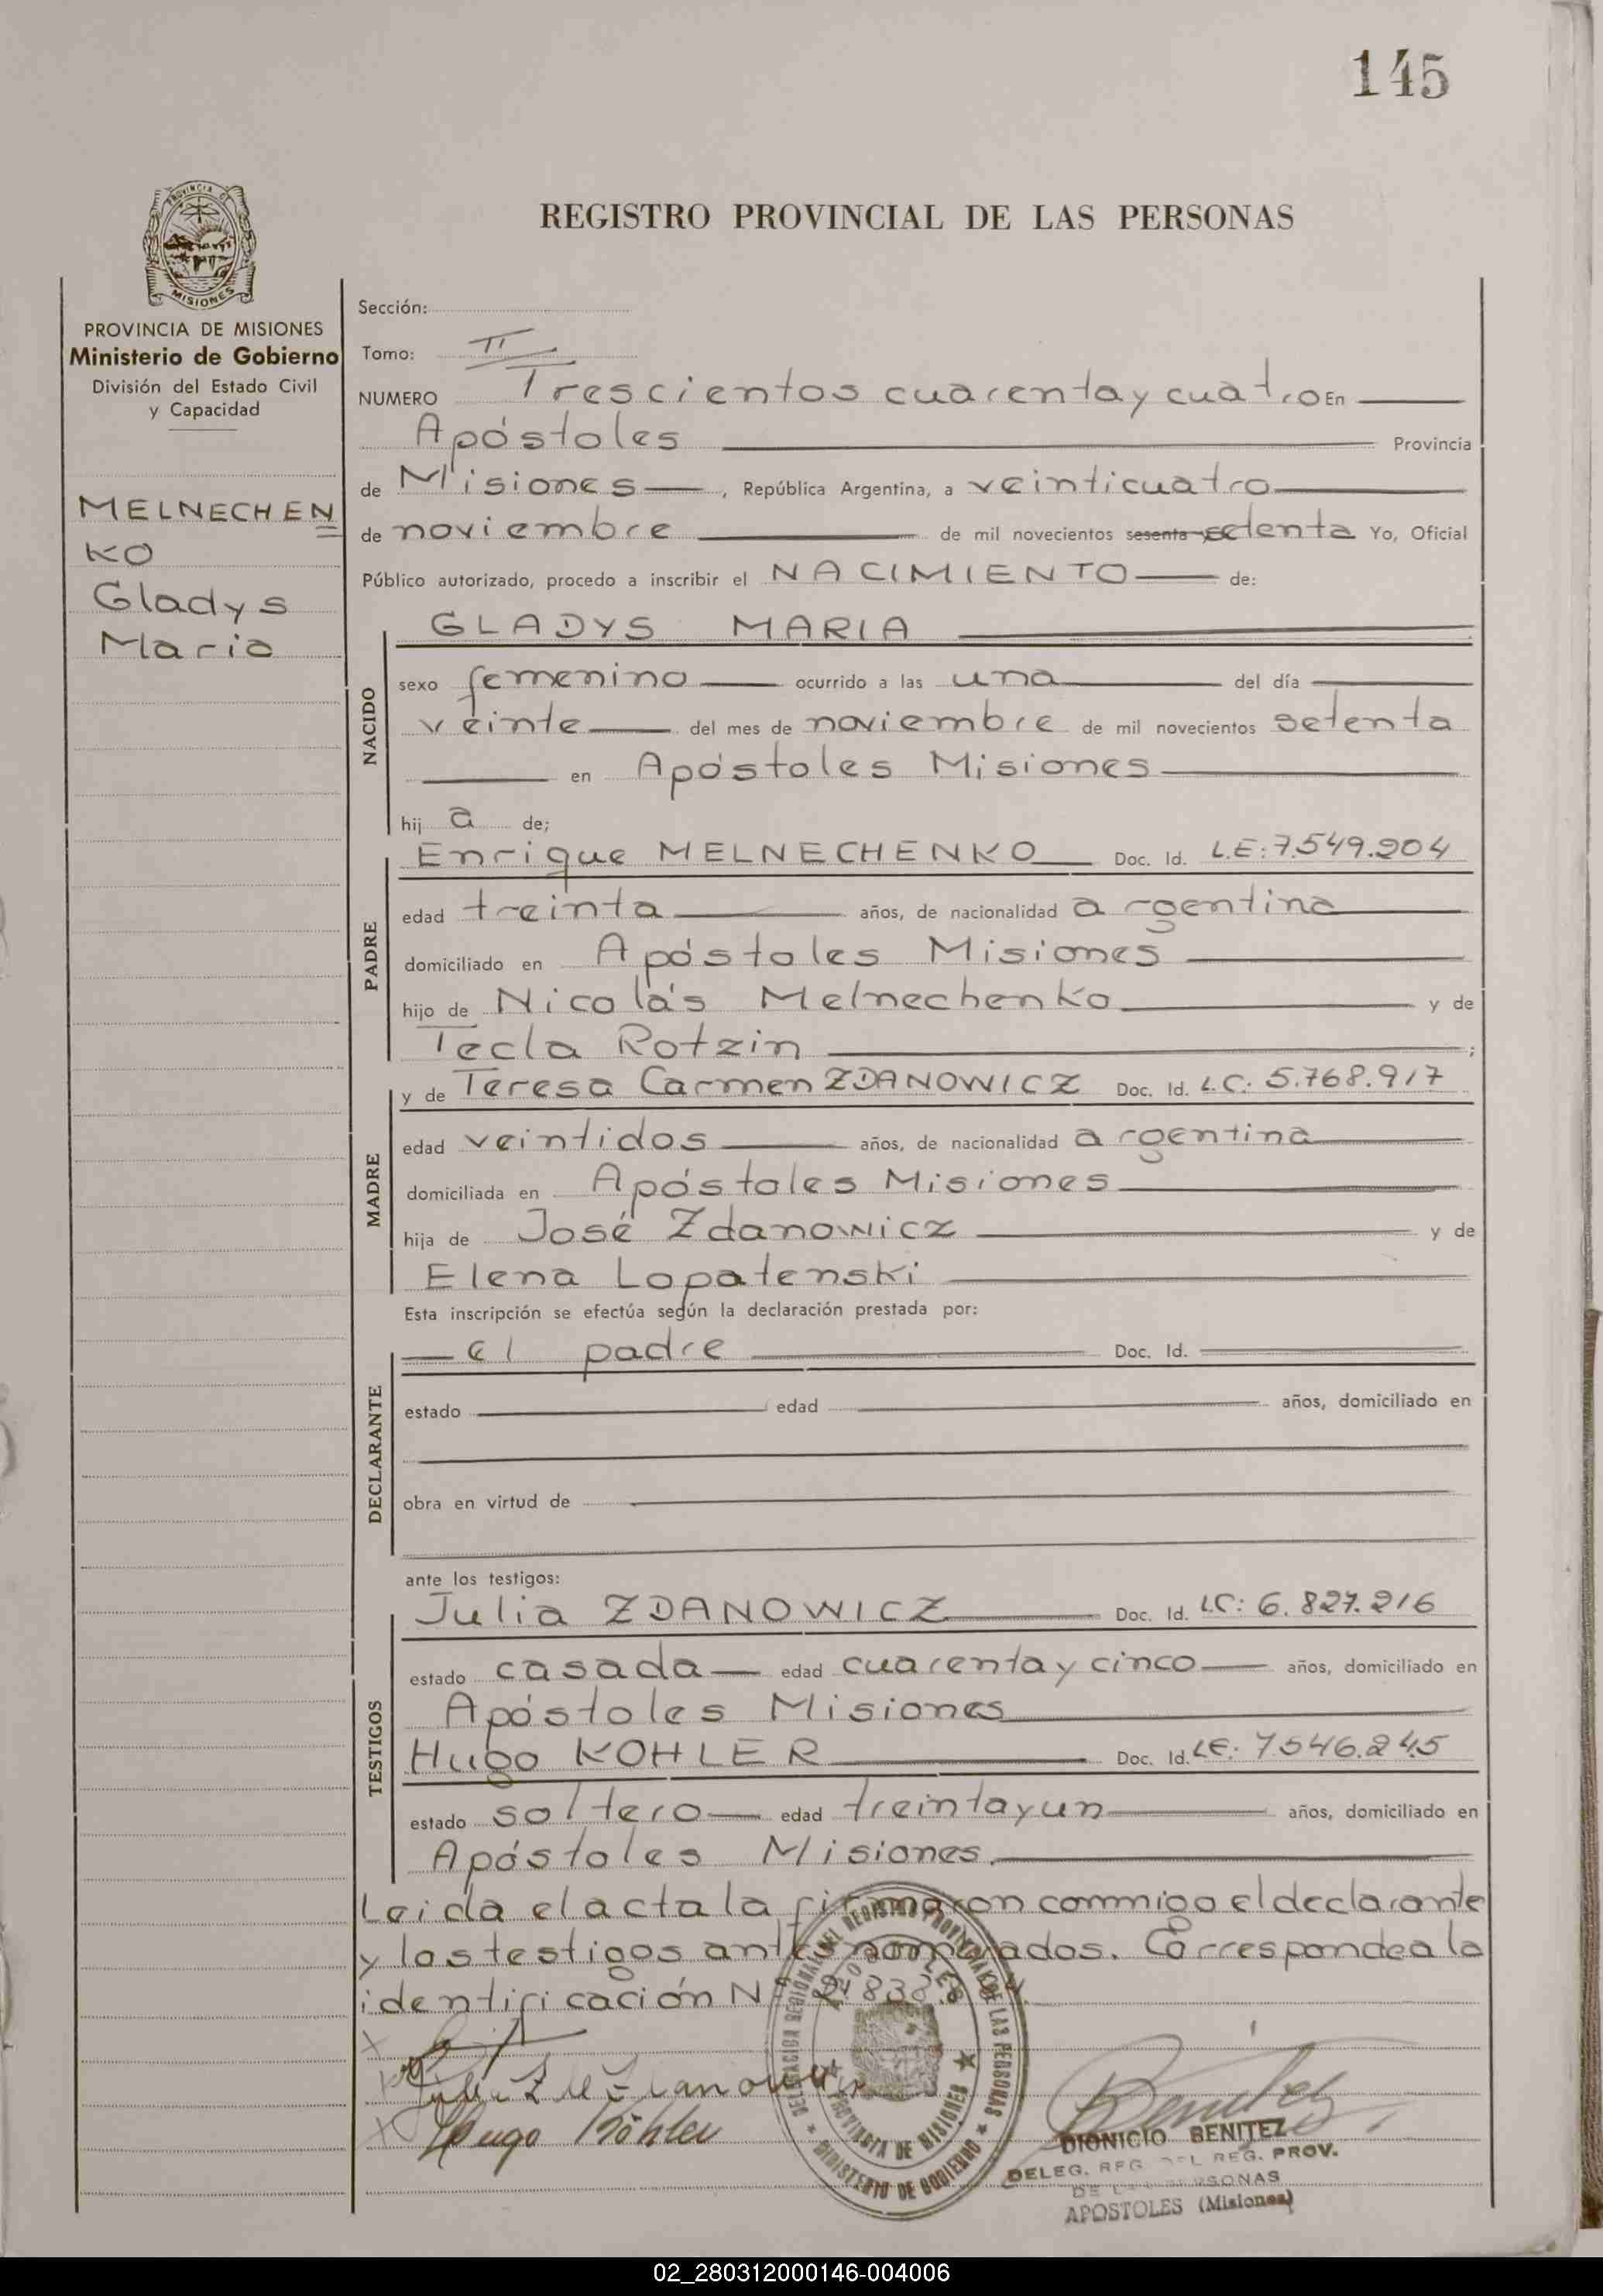 145
REGISTRO PROVINCIAL DE LAS PERSONAS
PROVINCIA DE
MISIONES
PROVINCIA DE MISIONES
Ministerio de Gobierno
División del Estado Civil
y Capacidad
MELNECHEN
KO
Gladys
Maria
Sección:
Tomo: II
NUMERO Trescientos cuarenta y cuatro En
Apóstoles Provincia
de Misiones, República Argentina, a veinticuatro
de noviembre de mil novecientos sesenta setenta Yo, Oficial
Público autorizado, procedo a inscribir el NACIMIENTO de:
NACIDO
GLADYS MARIA
sexo femenino ocurrido a las una del día
veinte del mes de noviembre de mil novecientos setenta
en Apóstoles Misiones
hij a de;
PADRE
Enrique MELNECHENKO Doc. Id. L.E: 7.549.204
edad treinta años, de nacionalidad argentina
domiciliado en Apóstoles Misiones
hijo de Nicolás Melnechenko y de
Tecla Rotzin ;
MADRE
y de Teresa Carmen ZDANOWICZ Doc. Id. L.C: 5.768.917
edad veintidos años, de nacionalidad argentina
domiciliada en Apóstoles Misiones
hija de José Zdanowicz y de
Elena Lopatenski
Esta inscripción se efectúa según la declaración prestada por:
DECLARANTE
el padre Doc. Id.
estado edad años, domiciliado en
obra en virtud de
ante los testigos:
TESTIGOS
Julia ZDANOWICZ Doc. Id. L.C: 6.827.216
estado casada edad cuarenta y cinco años, domiciliado en
Apóstoles Misiones
Hugo KOHLER Doc. Id. L.E: 7.546.245
estado soltero edad treinta y un años, domiciliado en
Apóstoles Misiones.
Leida el acta la firmaron conmigo el declarante
y los testigos antes nombrados. Corresponde a la
identificación Nº
DELEGACION REGIONAL DEL REGISTRO PROVINCIAL DE LAS PERSONAS
APOSTOLES
PROVINCIA DE MISIONES
MINISTERIO DE GOBIERNO
Hugo Köhler
Benitez
DIONICIO BENITEZ
DELEG. REG. DEL REG. PROV.
DE LAS PERSONAS
APOSTOLES (Misiones)
02_280312000146-004006